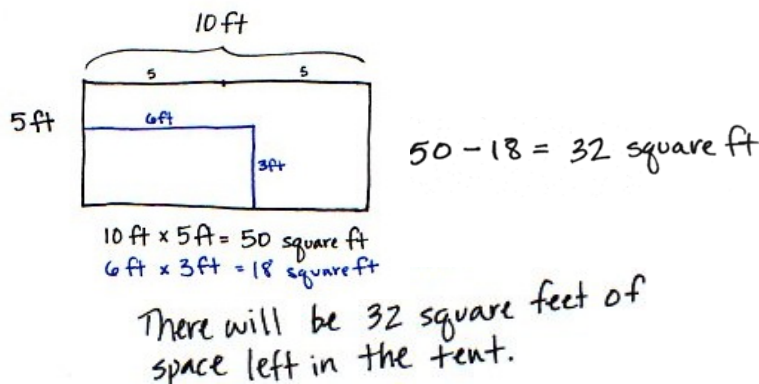 10 ft
5 5
5 ft
6ft
3ft
50 - 18 = 32 square ft
10 ft × 5 ft = 50 square ft
6 ft × 3 ft = 18 square ft
There will be 32 square feet of
space left in the tent.